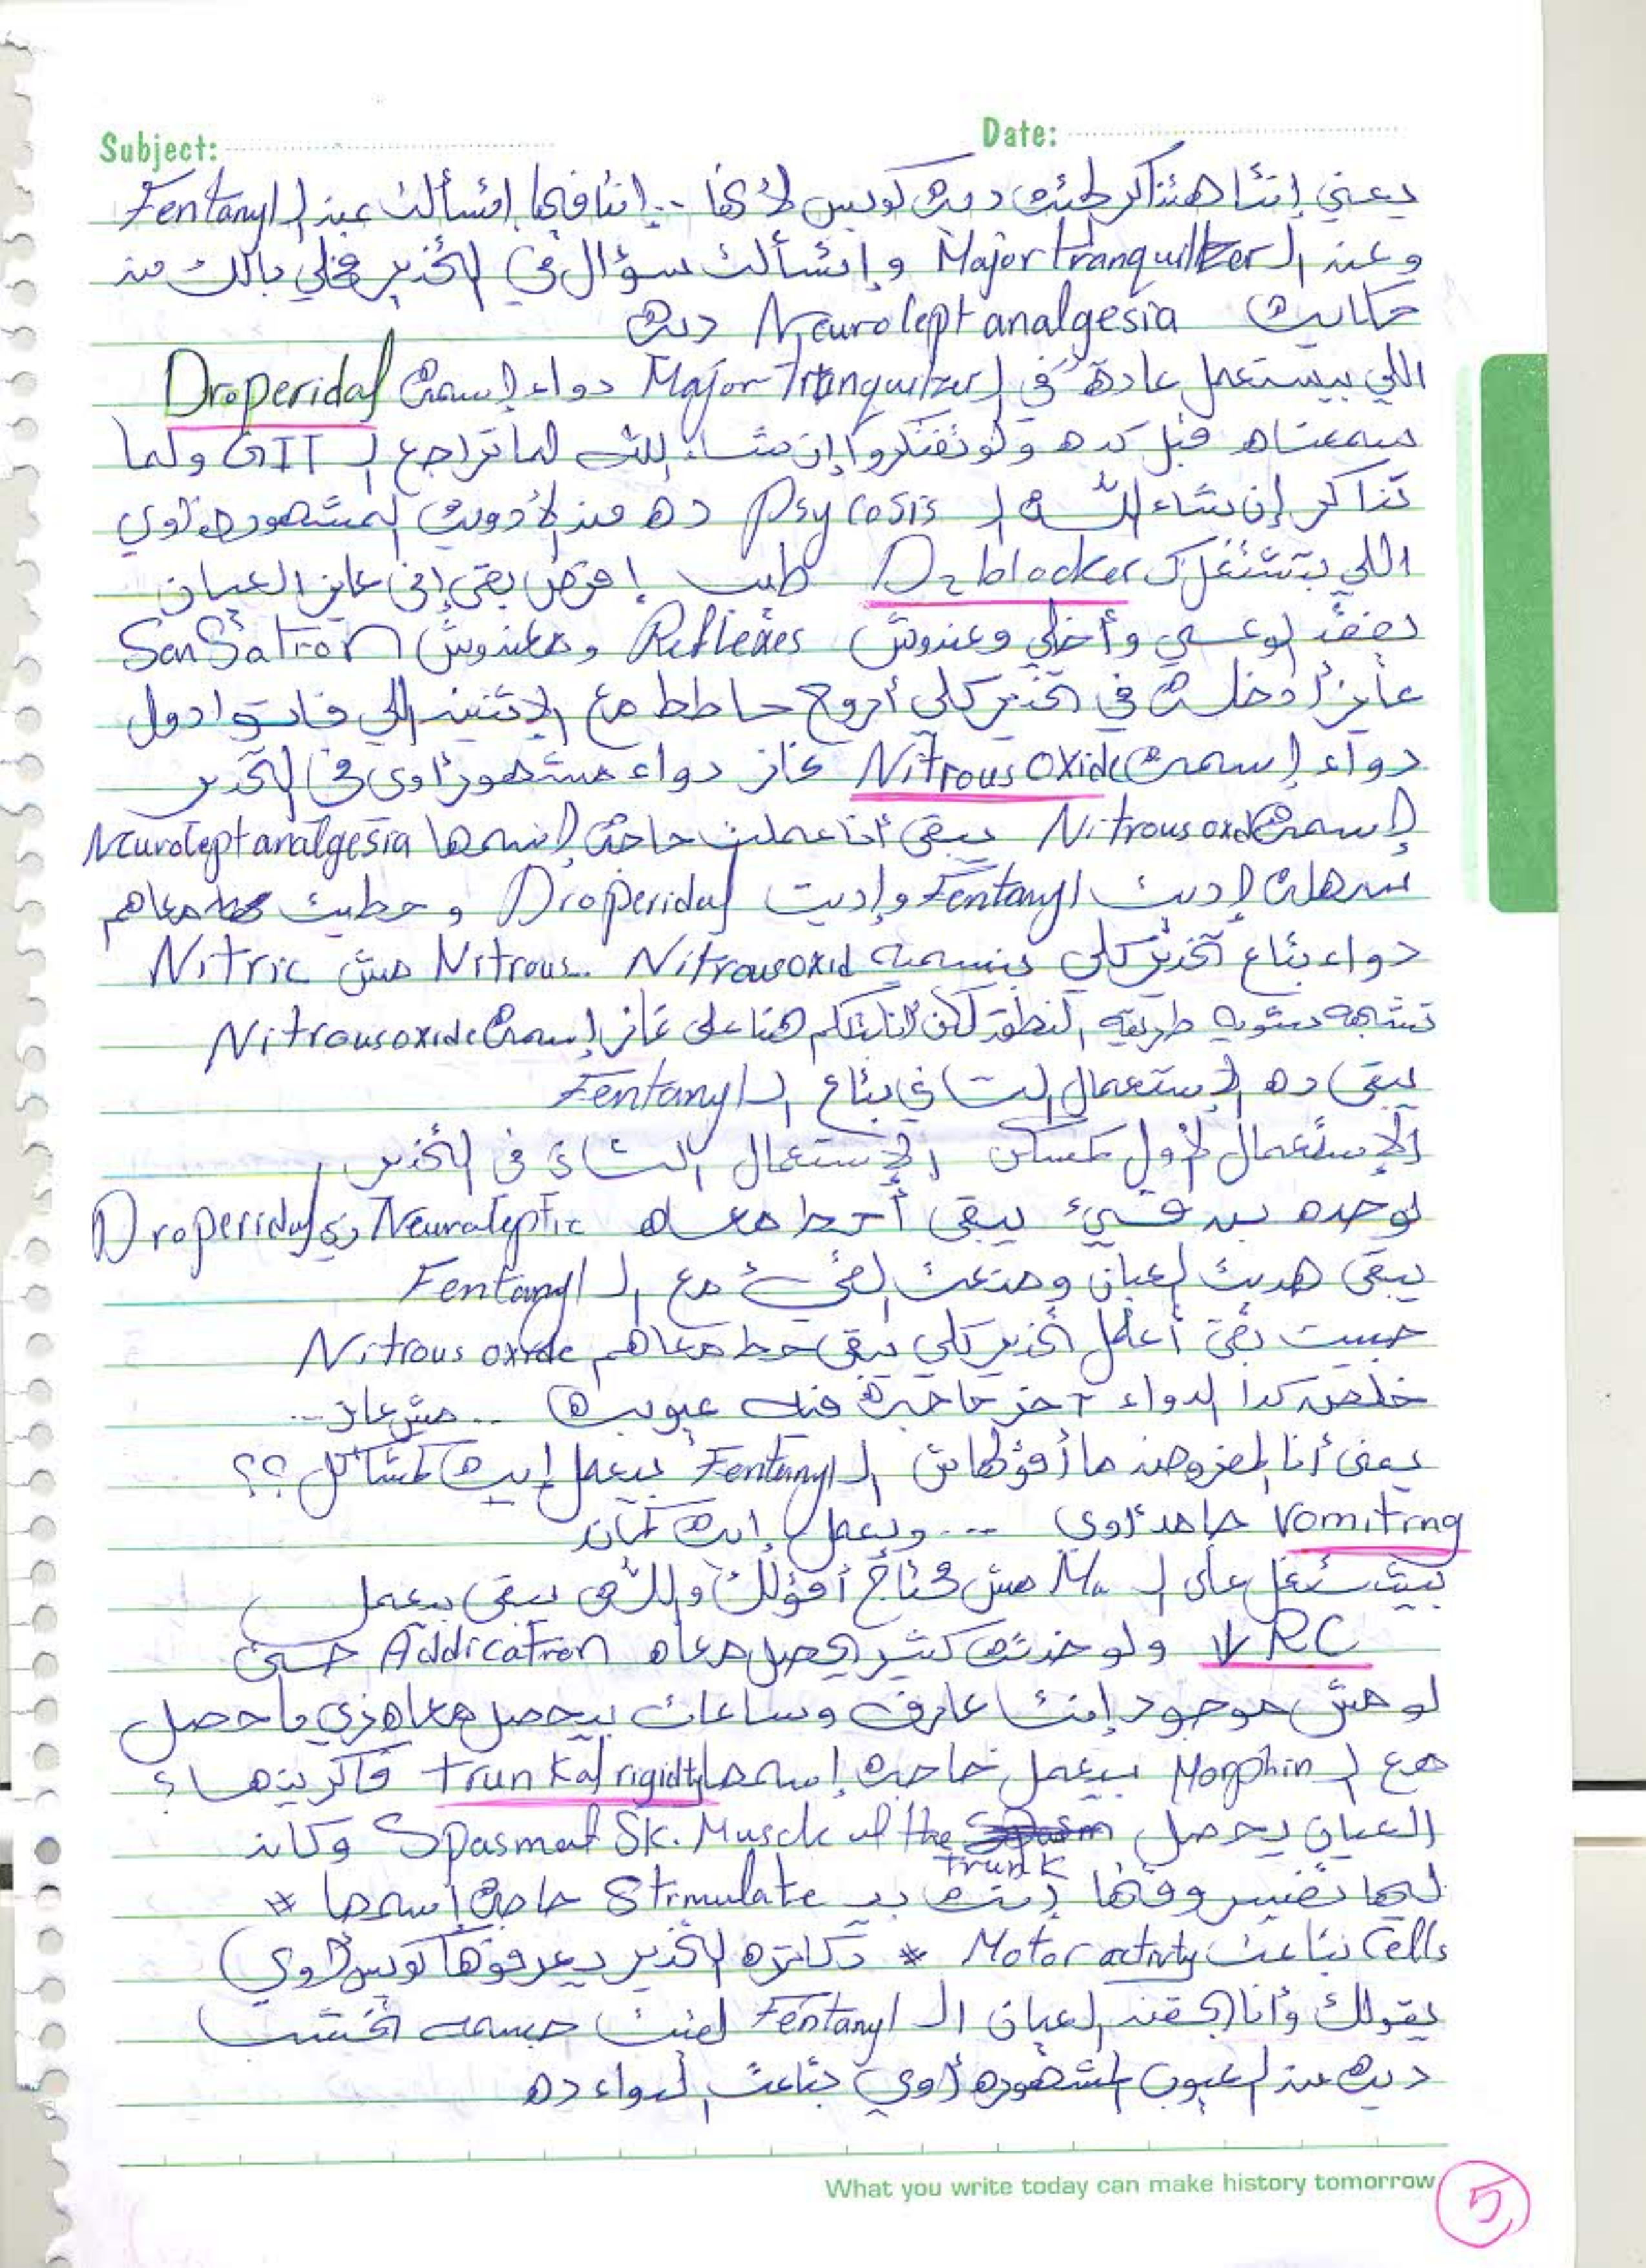 Subject: Date:
يعني إنتا هتذاكر الحتة ديه كويس لأنها .. إنتا فيها إتسألت عن ال Fentanyl
وعن ال Major tranquilizer وإتسألت سؤال في التخدير فخلي بالك من
حكاية Neurolept analgesia ديه
اللي بيستعمل عادة في ال Major Tranquilizer دواء إسمه Droperidal
سمعناه قبل كده ولو تفتكروا إن شاء الله لما تراجع ال GIT ولما
تذاكر إن شاء الله ال Psycosis ده من الأدوية المشهوره أوي
اللي بتشتغل ك D2 blocker طب إفرض بقى إني عايز العيان
يفقد الوعي وأخلي وعندوش Reflexes ومعندوش Sensation
عايز أدخله في تخدير كلي أروح حاطط مع الإتنين اللي فاتوا دول
دواء إسمه Nitrous oxide غاز دواء مشهور أوي في التخدير
إسمه Nitrous oxide يبقى أنا عملت حاجة إسمها Neurolept analgesia
سهلة إديت Fentanyl وإديت Droperidal وحطيت معاهم
دواء بتاع تخدير كلي بنسميه Nitrousoxid .Nitrous مش Nitric
تشبه شويه طريقه النطق لكن أنا بتكلم هنا على غاز إسمه Nitrousoxide
يبقى ده الإستعمال التاني بتاع ال Fentanyl
الإستعمال الأول كمسكن الإستعمال التاني في التخدير
لوحده بيرقيء يبقى أحط معاه Neuroleptic زي Droperidal
يبقى هديت العيان ومنعت القيء مع ال Fentanyl
حبيت بقى أعمل تخدير كلي يبقى حط معاهم Nitrous oxide
خلص كدا الدواء آخر حاجة فيه عيوبه .. مش عايز ..
يعني أنا المفروض ما أقولهاش ال Fentanyl بيعمل إيه مشاكل ؟؟
Vomiting جامد أوي ... وبيعمل إيه كمان
بيشتغل على ال Mu مش محتاج أقولك واللهي يبقى بيعمل
↓ RC ولو خدته كتير يحصل معاه Addication حتى
لو مش موجود إنتا عارف وساعات بيحصل معاه زي ما حصل
مع ال Morphin بيعمل حاجة إسمها trunkal rigidity فاكرينها ؟
العيان يحصل Spasmat Sk. Muscle of the trunk وكان
ليها تفسير وقتها إنه بـ Stimulate حاجة إسمها *
Cells بتاعت Motor activity * دكاتره التخدير يعرفوها كويس أوي
يقولك وأنا بحقن العيان ال Fentanyl لقيت جسمه إتخشب
ديه من العيوب المشهوره أوي بتاعت الدواء ده
What you write today can make history tomorrow
5